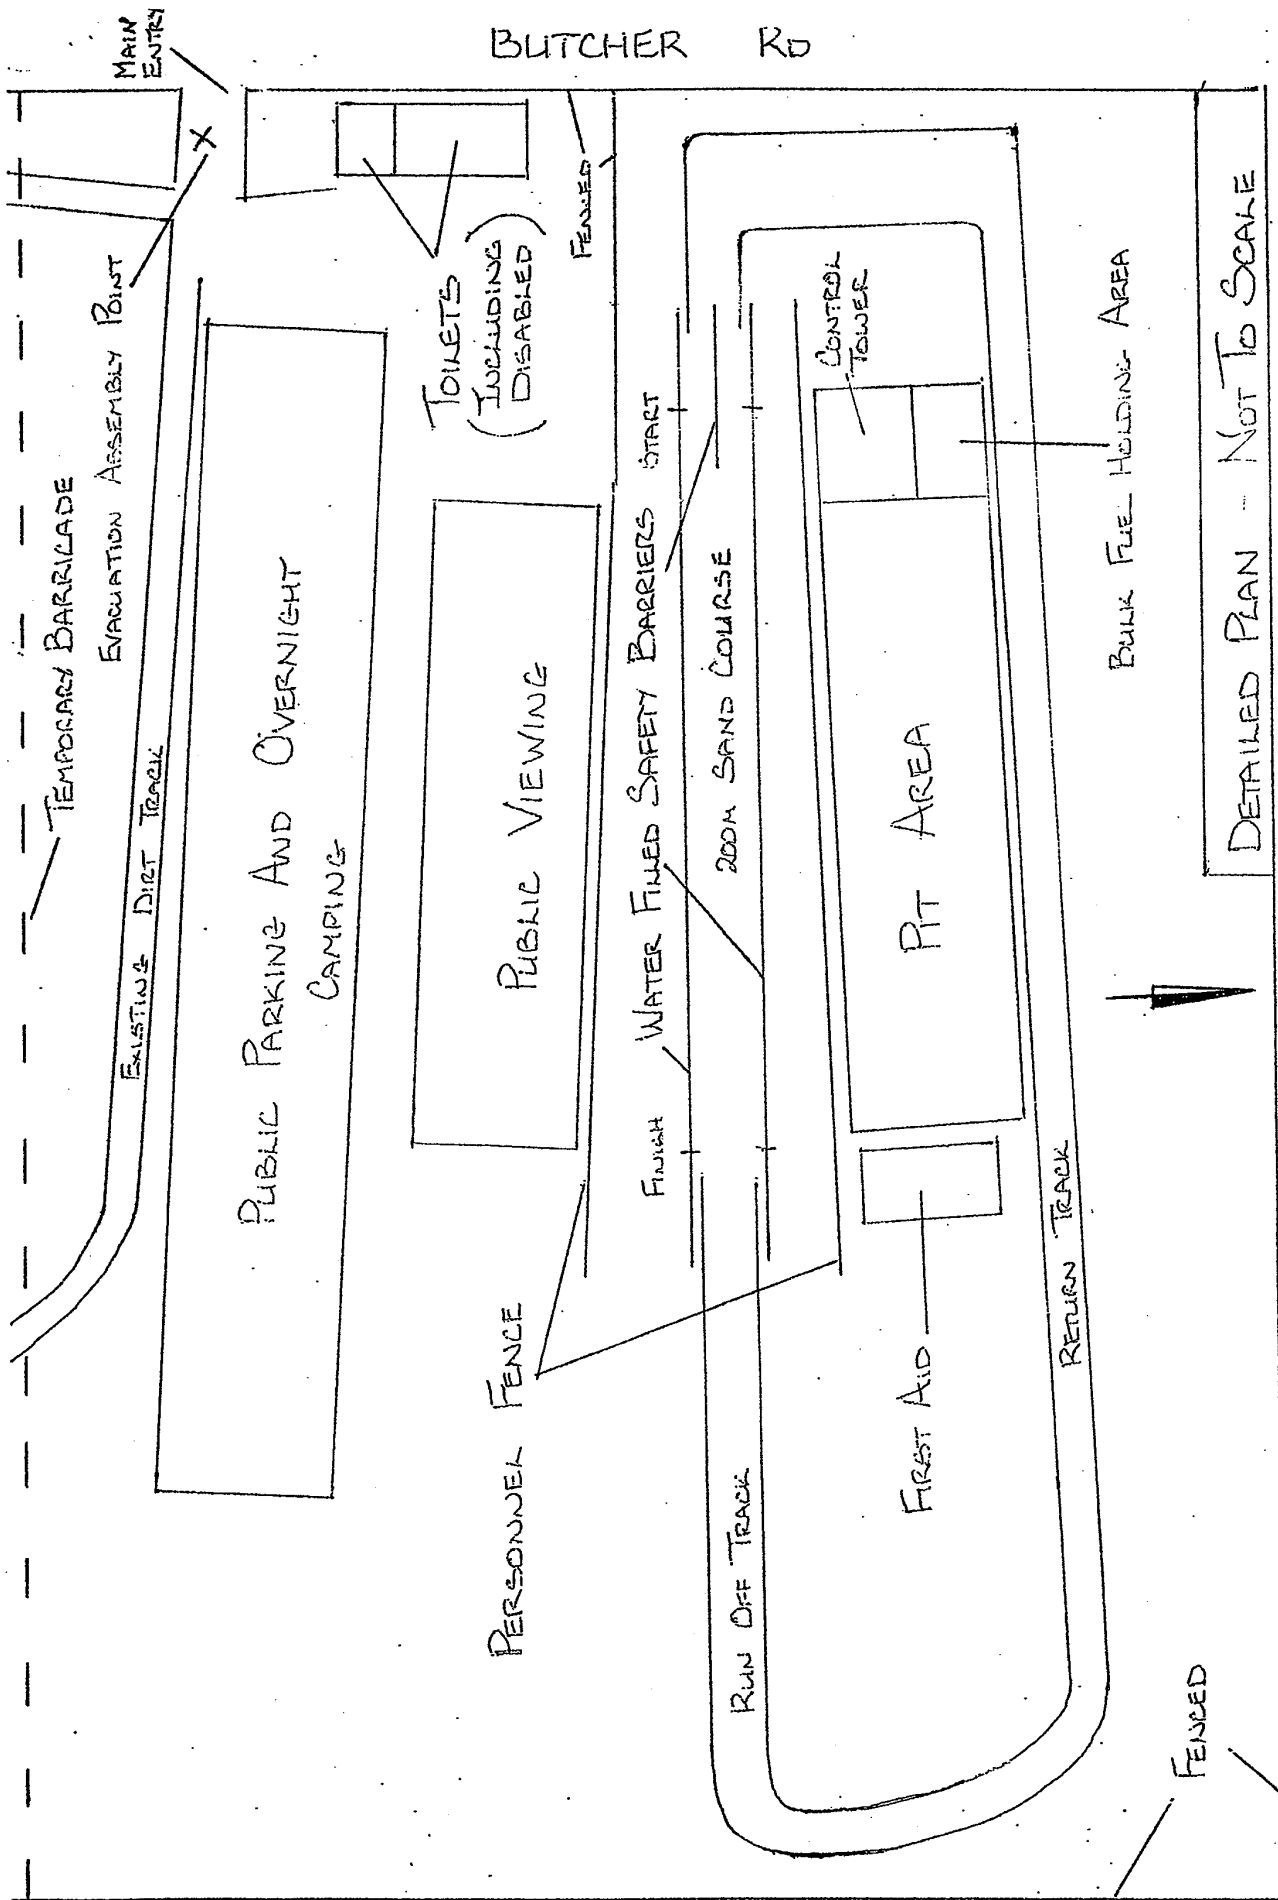 BUTCHER RD
MAIN
ENTRY
TEMPORARY BARRICADE
EVACUATION ASSEMBLY POINT
EXISTING DIRT TRACK
PUBLIC PARKING AND OVERNIGHT
CAMPING
TOILETS
(INCLUDING
DISABLED)
FENCED
PUBLIC VIEWING
PERSONNEL FENCE
FINISH
WATER FILLED SAFETY BARRIERS
START
200M SAND COURSE
RUN OFF TRACK
CONTROL
TOWER
PIT AREA
FIRST AID
RETURN TRACK
BULK FUEL HOLDING AREA
FENCED
DETAILED PLAN - NOT TO SCALE